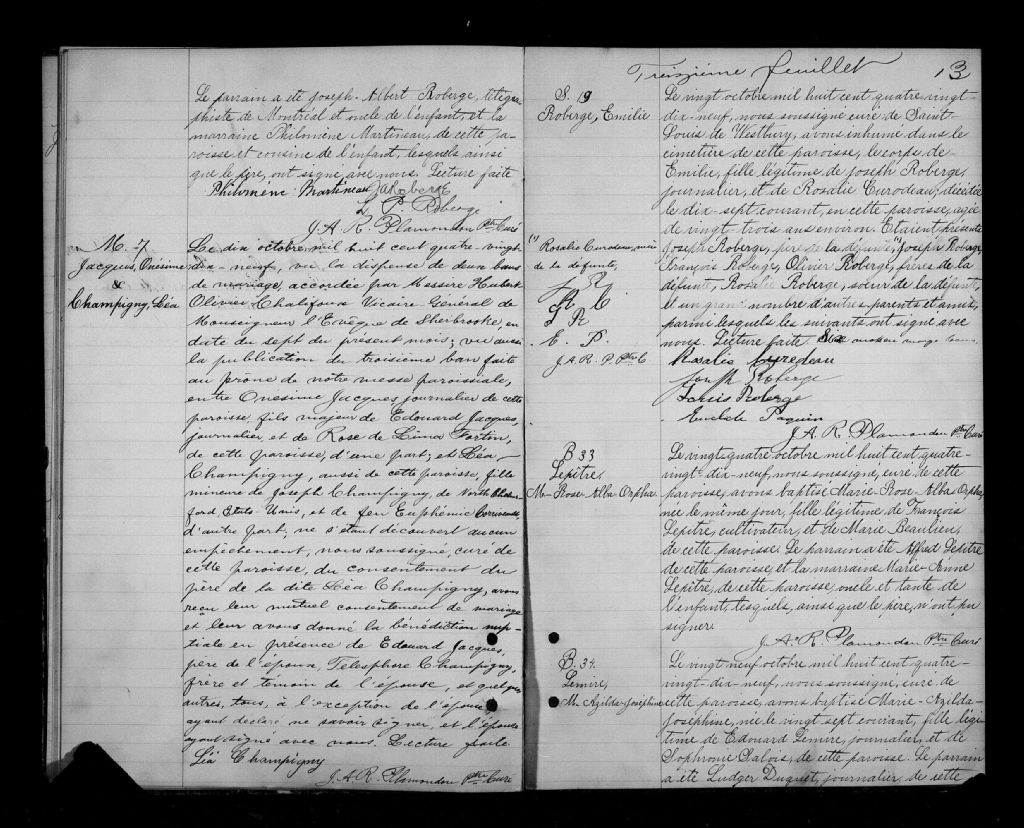 Le parrain a été Joseph-Albert Roberge, télégra-
phiste de Montréal et oncle de l'enfant, et la
marraine Philomène Martineau, de cette pa-
roisse et cousine de l'enfant, lesquels ainsi
que le père, ont signé avec nous. Lecture faite
Philomène Martineau J A Roberge
L. P. Roberge
J. A. R. Plamondon Ptre Curé
M. 7
Jacques, Onésime
&
Champigny, Léa
Le dix octobre mil huit cent quatre-vingt-
dix-neuf, vu la dispense de deux bans
de mariage, accordée par Messire Hubert
Olivier Chalifoux Vicaire Général de
Monseigneur l'Evêque de Sherbrooke, en
date du sept du présent mois; vu aussi
la publication du troisième ban faite
au prône de notre messe paroissiale,
entre Onésime Jacques journalier de cette
paroisse, fils majeur de Edouard Jacques,
journalier, et de Rose de Lima Fortin,
de cette paroisse, d'une part; et Léa
Champigny, aussi de cette paroisse, fille
mineure de Joseph Champigny, de North
ford Etats Unis, et de feu Euphémie
d'autre part; ne s'étant découvert aucun
empêchement, nous soussigné, curé de
cette paroisse, du consentement du
père de la dite Léa Champigny, avons
reçu leur mutuel consentement de mariage
et leur avons donné la bénédiction nup-
tiale en présence de Edouard Jacques,
père de l'époux, Télesphore Champigny,
frère et témoin de l'épouse, et quelques
autres, tous, à l'exception de l'épouse,
ayant déclaré ne savoir signer, et l'épouse
ayant signé avec nous. Lecture faite
Léa Champigny
J. A. R. Plamondon Ptre Curé
Treizième feuillet
13
S. 19
Roberge, Emilie
Le vingt octobre mil huit cent quatre-vingt-
dix-neuf, nous soussigné curé de Saint-
Louis de Westbury, avons inhumé dans le
cimetière de cette paroisse, le corps de
Emilie, fille légitime de Joseph Roberge,
journalier, et de Rosalie Curodeau, décédée
le dix-sept courant, en cette paroisse, agée
de vingt-trois ans environ. Etaient présents
Joseph Roberge, père de la défunte, (1) Joseph Roberge,
François Roberge, Olivier Roberge, frères de la
défunte, Rosalie Roberge, soeur de la défunte,
et un grand nombre d'autres parents et amis,
parmi lesquels les suivants ont signé avec
nous. Lecture faite
(1) Rosalie Curodeau, mère
de la défunte,
J. R.
R. C
J R
E. P.
J. A. R. P. Ptre C
Rosalie Curedeau
Joseph Roberge
Louis Roberge
Paquin
J. A. R. Plamondon Ptre Curé
B 33
Lepître,
M. Rose-Alba-Orpha
Le vingt-quatre octobre mil huit cent quatre-
vingt-dix-neuf, nous soussigné, curé de cette
paroisse, avons baptisé Marie-Rose-Alba-Orpha,
née le même jour, fille légitime de François
Lepître, cultivateur, et de Marie Beaulieu,
de cette paroisse. Le parrain a été Alfred Lepître
de cette paroisse, et la marraine Marie-Anne
Lepître, de cette paroisse, oncle et tante de
l'enfant, lesquels, ainsi que le père, n'ont pu
signer.
J. A. R. Plamondon Ptre Curé
B. 34.
Lemire,
M. Azilda-Joséphine
Le vingt neuf octobre mil huit cent quatre-
vingt-dix-neuf, nous soussigné, curé de
cette paroisse, avons baptisé Marie-Azilda-
Joséphine, née le vingt sept courant, fille légi-
time de Edouard Lemire, journalier, et de
Sophronie Salois, de cette paroisse. Le parrain
a été Ludger Duquet, journalier, de cette